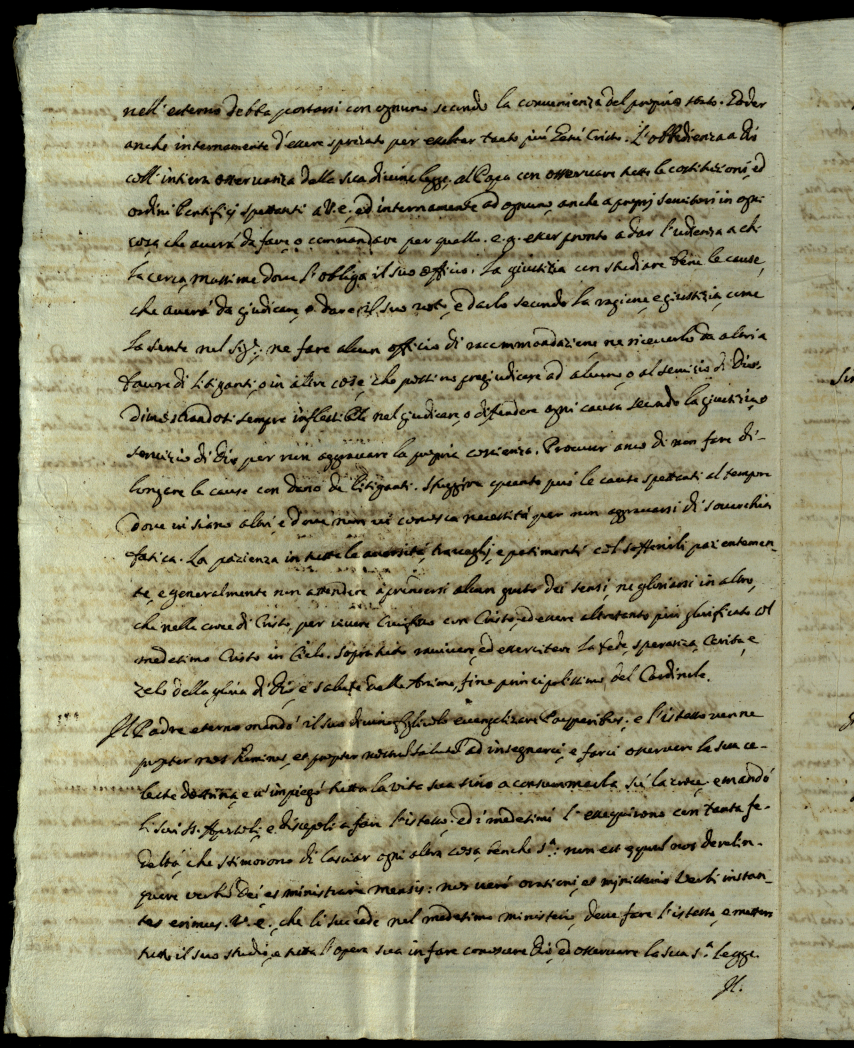 nell'esterno debba portarsi con ognuno secondo la convenienza del proprio stato. Goder
anche internamente d'essere sprezato per essaltar tanto più Giesù Cristo. L'obbedienza a Dio
coll'intiera osservanza della sua divina legge, al Papa con osservare tutte le costitutioni, ed
ordini Pontificij spettanti a V.E., ed internamente ad ognuno, anche a proprij servitori in ogni
cosa, che averà da fare, o commandare per quello. e.g. esser pronto a dar l'udienza a chi
la cerca, massime dove l'obliga il suo officio. La giustizia con studiare bene le cause,
che averà da giudicare, o dare il suo voto, e darlo secondo la ragione, e giustizia, come
la sente nel Sig.e: ne fare alcun officio di raccommandazione, ne riceverlo da altri a
favore di litiganti, o in altre cose, che possino pregiudicare ad alcuno, o al servizio di Dio.
Dimostrandosi sempre inflessibile nel giudicare, o difendere ogni causa secondo la giustizia, o
servizio di Dio per non aggravare la propria coscienza. Procurar anco di non fare di-
longare le cause con dano de litiganti. Sfuggire quanto può le cause spettanti al temporale
dove vi siano altri, e dove non vi conosca necessità per non aggravarsi di soverchia
fatica. La pazienza in tutte le aversità, travaglij, e patimenti col soffrirli pazientemen-
te, e generalmente non attendere a prendersi alcun gusto dei sensi, ne gloriarsi in altro,
che nella croce di Cristo, per vivere Crucifisso con Cristo, ed essere altretanto più glorificato col
medesimo Cristo in Cielo. Sopratutto ravivare, ed essercitare la fede, speranza, Carità, e
zelo della gloria di Dio, e salute delle Anime, fine principalissimo del Cardinale.
Il Padre eterno mandò il suo divino figliolo evangelizare Pauperibus; e l'istesso venne
propter nos homines, et propter nostram salutem ad insegnarci, e farci osservare la sua ce-
leste dottrina, e v'impiegò tutta la vita sua sino a consummarla sù la croce. e mandò
li suoi SS. Apostoli, e discepoli a fare l'istesso. ed i medesimi l'essequirono con tanta fe-
deltà, che stimorono di lasciar ogni altra cosa, benche S.a: non est aequum nos derelin-
quere verbum Dei, et ministrare mensis: nos vero orationi, et ministerio Verbi instan-
tes erimus. V.E., che li succede nel medesimo ministerio, deve fare l'istesso, e metter
tutto il suo studio, e tutta l'opera sua in fare conoscere Dio, ed osservare la sua S.a legge.
Il.